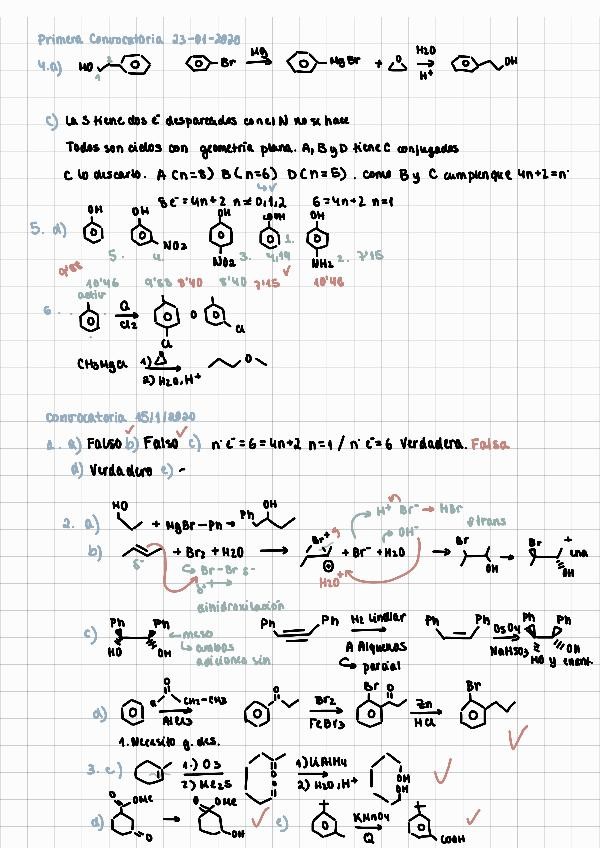 Primera Convocatoria 23-01-2020
4.a) HO Br Mg MgBr + H2O H+ OH
c) La S tiene dos e- desparejados con el N no se hace
Todos son ciclos con geometría plana. A, B y D tiene C conjugados
C lo descarto. A (n=8) B (n=6) D (n=5). como B y C cumplen que 4n+2=nº
8e- = 4n+2 n≠0,1,2 6=4n+2 n=1
5. d) OH OH OH COOH OH
NO2 NO2 NH2
5. 4. 3. 4,19 1. 2. 7'15
9'88
10'46 9'88 8'40 8'40 7'15 10'46
activ
6. Cl2 Cl O Cl
CH3MgCl 1) O 2) H2O, H+ O
Convocatoria 15/1/2020
1. a) Falso b) Falso c) nº e- = 6 = 4n+2 n=1 / nº e- = 6 Verdadera. Falsa
d) Verdadero e)
2. a) HO + MgBr-Ph → Ph OH
H+ Br- → HBr
OH-
b) + Br2 + H2O → Br+ + Br- + H2O → Br OH → Br OH +
δ- Br-Br δ-
δ+
H2O
dihidroxilación
c) Ph Ph HO OH meso ambas adiciones sin
Ph Ph H2 Lindlar A Alquenos parcial Ph Ph OsO4 NaHSO3 Ph Ph HO OH y enant.
d) O Cl CH2-CH3 AlCl3 O Br2 FeBr3 Br O Zn HCl Br
1. Necesito g. des.
3. c) 1.) O3 2) Me2S O O 1) LiAlH4 2) H2O, H+ OH OH
d) O OMe O → O OMe OH e) KMnO4 Q COOH